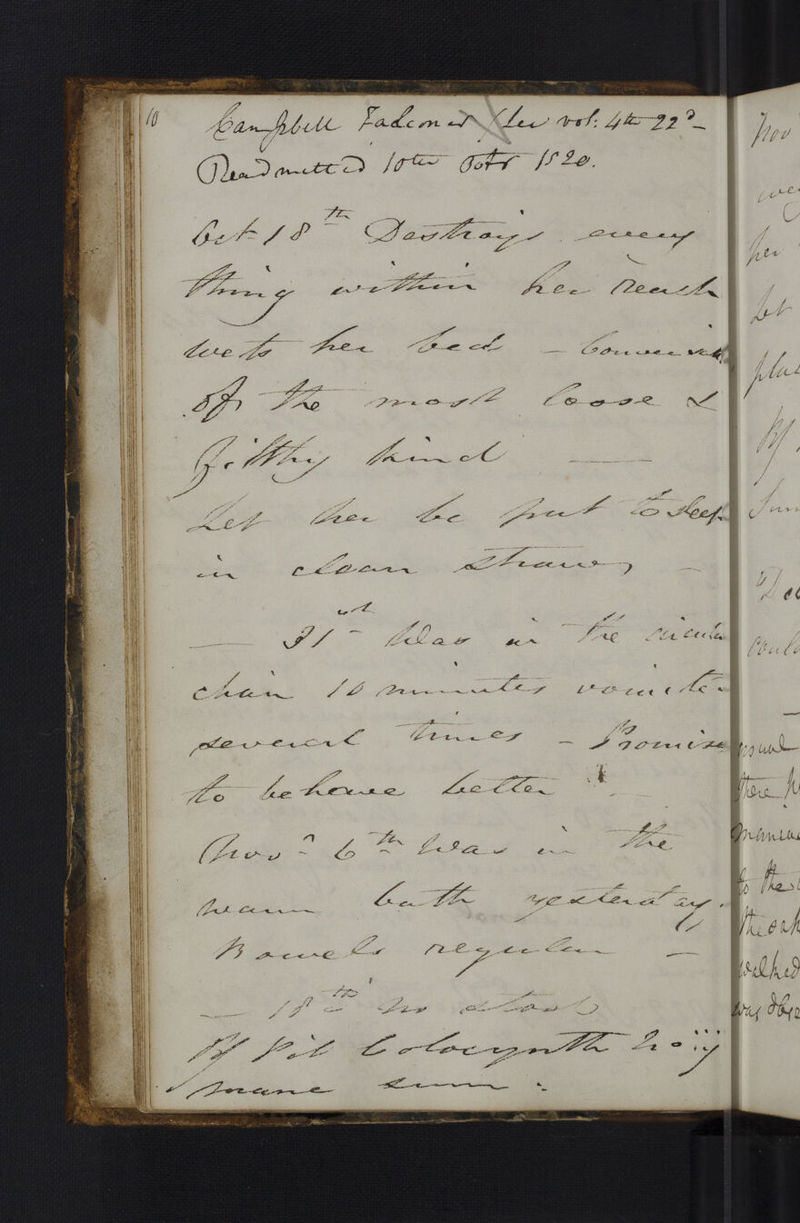 10 Campbell Falconer (See vol: 4th 22d
Readmitted 10th Octr 1820.
Oct 18th Destroys every
thing within her reach
wets her bed - Conversation
of the most loose &
filthy kind —
Let her be put to sleep
in clean straw, -
— 31st Was in the circular
chair 10 minutes vomited
several times - Promises
to behave better
Novr 6th Was in the
warm bath yesterday.
Bowels regular -
— 18th No stool
℞ Pil Colocynth No iij
mane sum:
Nov
her
Let
℞
could
usual
there
to the
the
walked
was